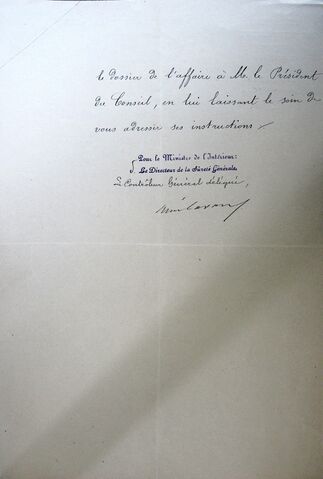 le dossier de l'affaire à M. le Président
du Conseil, en lui laissant le soin de
vous adresser ses instructions.
Pour le Ministre de l'Intérieur:
Le Directeur de la Sûreté Générale,
Le Contrôleur Général délégué,